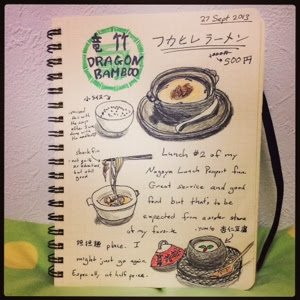 27 Sept 2013
竹
DRAGON
BAMBOO
フカヒレラーメン
500円
小ライス
shark fin
Lunch #2 of my
Nagoya Lunch Passport fun.
Great service and good
food but that's to be
expected from a sister store
of my favorite
担担麺 place. I
might just go again.
Especially at half price.
yum!
杏仁豆腐